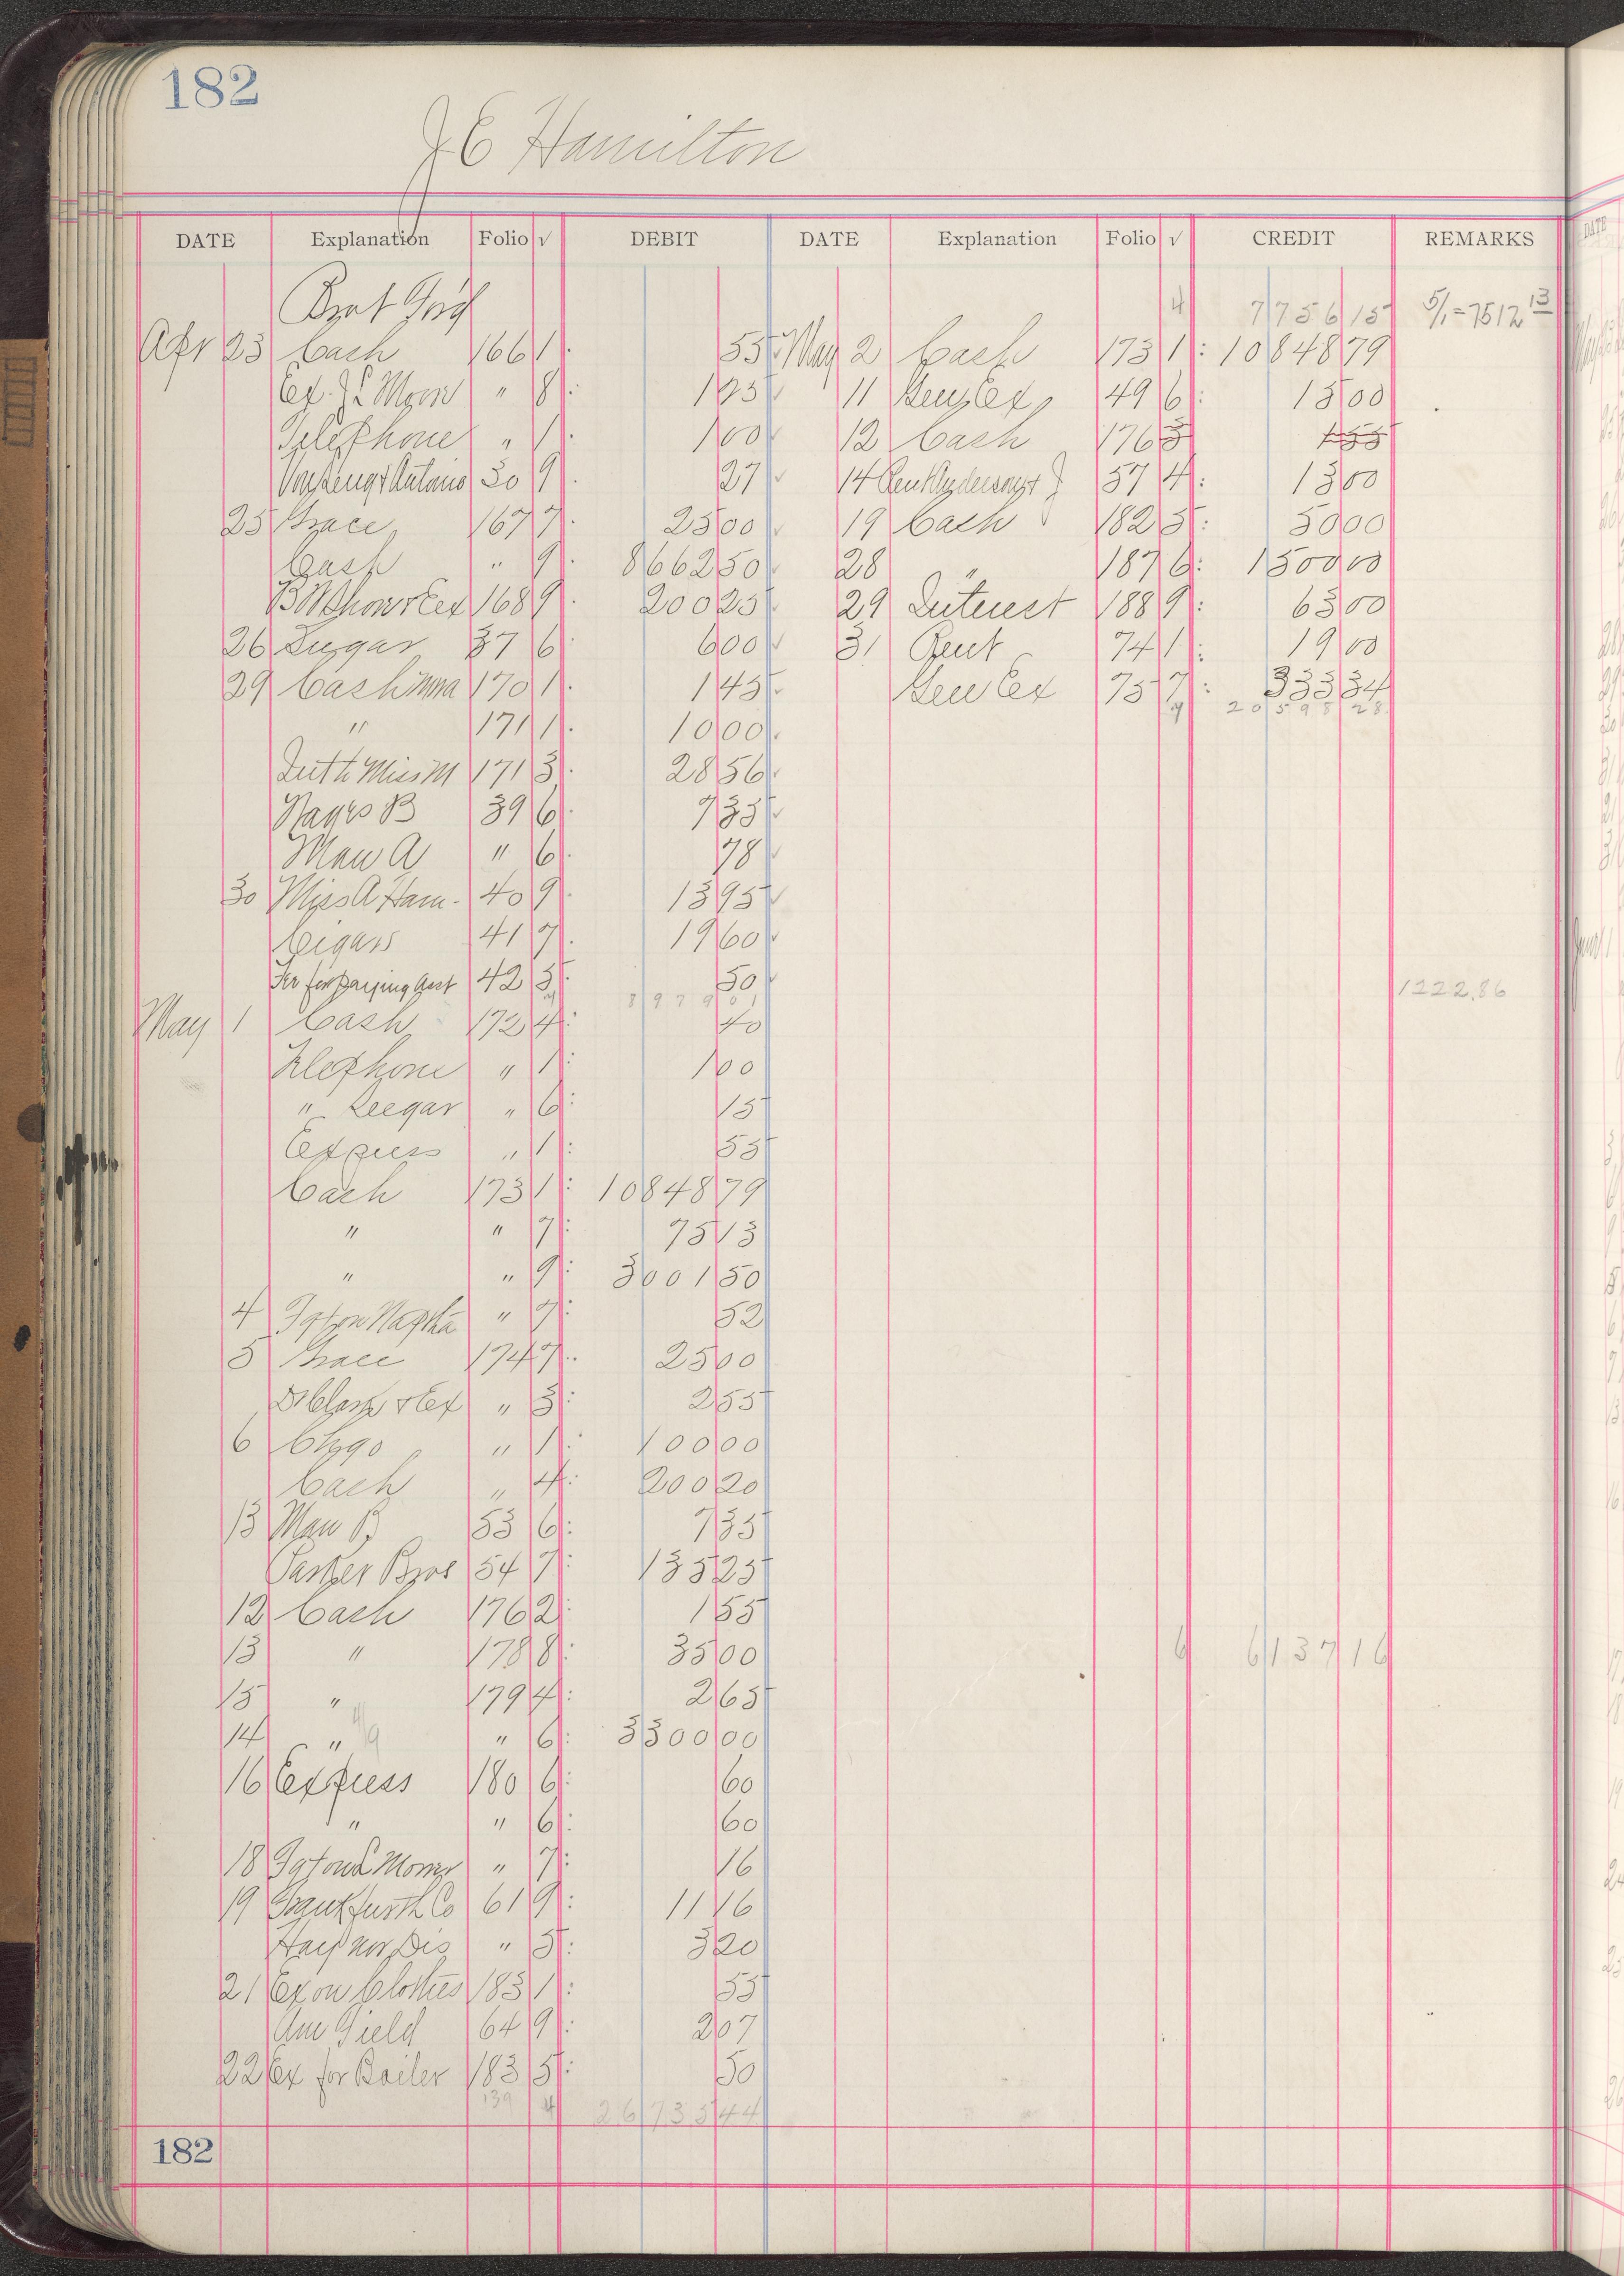 182
J E Hamilton
DATE Explanation Folio √ DEBIT DATE Explanation Folio √ CREDIT REMARKS
Brot For'd 4 7756 15 5/1 = 7512 13
Apr 23 Cash 166 1 55 May 2 Cash 173 1 10848 79
Ex. J L Moon " 8 1 25 11 Gen Ex 49 6 15 00
Telephone " 1 1 00 12 Cash 176 1 55
Antonio 30 9 27 14 Rent Anderson + J 57 4 13 00
25 Grace 167 7 25 00 19 Cash 182 5 50 00
Cash " 9 8662 50 28 " 187 6 1500 00
B W Show + Ex 168 9 200 25 29 Interest 188 9 63 00
26 Sugar 37 6 6 00 31 Rent 74 1 19 00
29 Cash 170 1 1 45 Gen Ex 75 7 333 34
4 20598 28
" 171 1 10 00
Miss M 171 3 28 56
Wages B 39 6 7 35
Man A " 6 78
30 Miss A Ham- 40 9 13 95
Cigars 41 7 19 60
for paying 42 5 50
8979 01 1222.86
May 1 Cash 172 4 40
Telephone " 1 1 00
" Seegar " 6 15
Express " 1 55
Cash 173 1 10848 79
" " 7 75 13
" " 9 3001 50
4 Naptha " 7 52
5 Grace 174 7 25 00
+ Ex " 3 2 55
6 Chgo " 1 100 00
Cash " 4 200 20
13 Man B 53 6 7 35
Parker Bros 54 7 135 25
12 Cash 176 2 1 55
13 " 178 8 35 00 6 6137 16
15 " 179 4 2 65
14 " " 6 3300 00
16 Express 180 6 60
" " 6 60
18 " 7 16
19 Frankfurth Co 61 9 11 16
Dis " 5 3 20
21 Ex on Clothes 183 1 55
Am Field 64 9 2 07
22 Ex for Boiler 183 5 50
139 4 26735 44
182